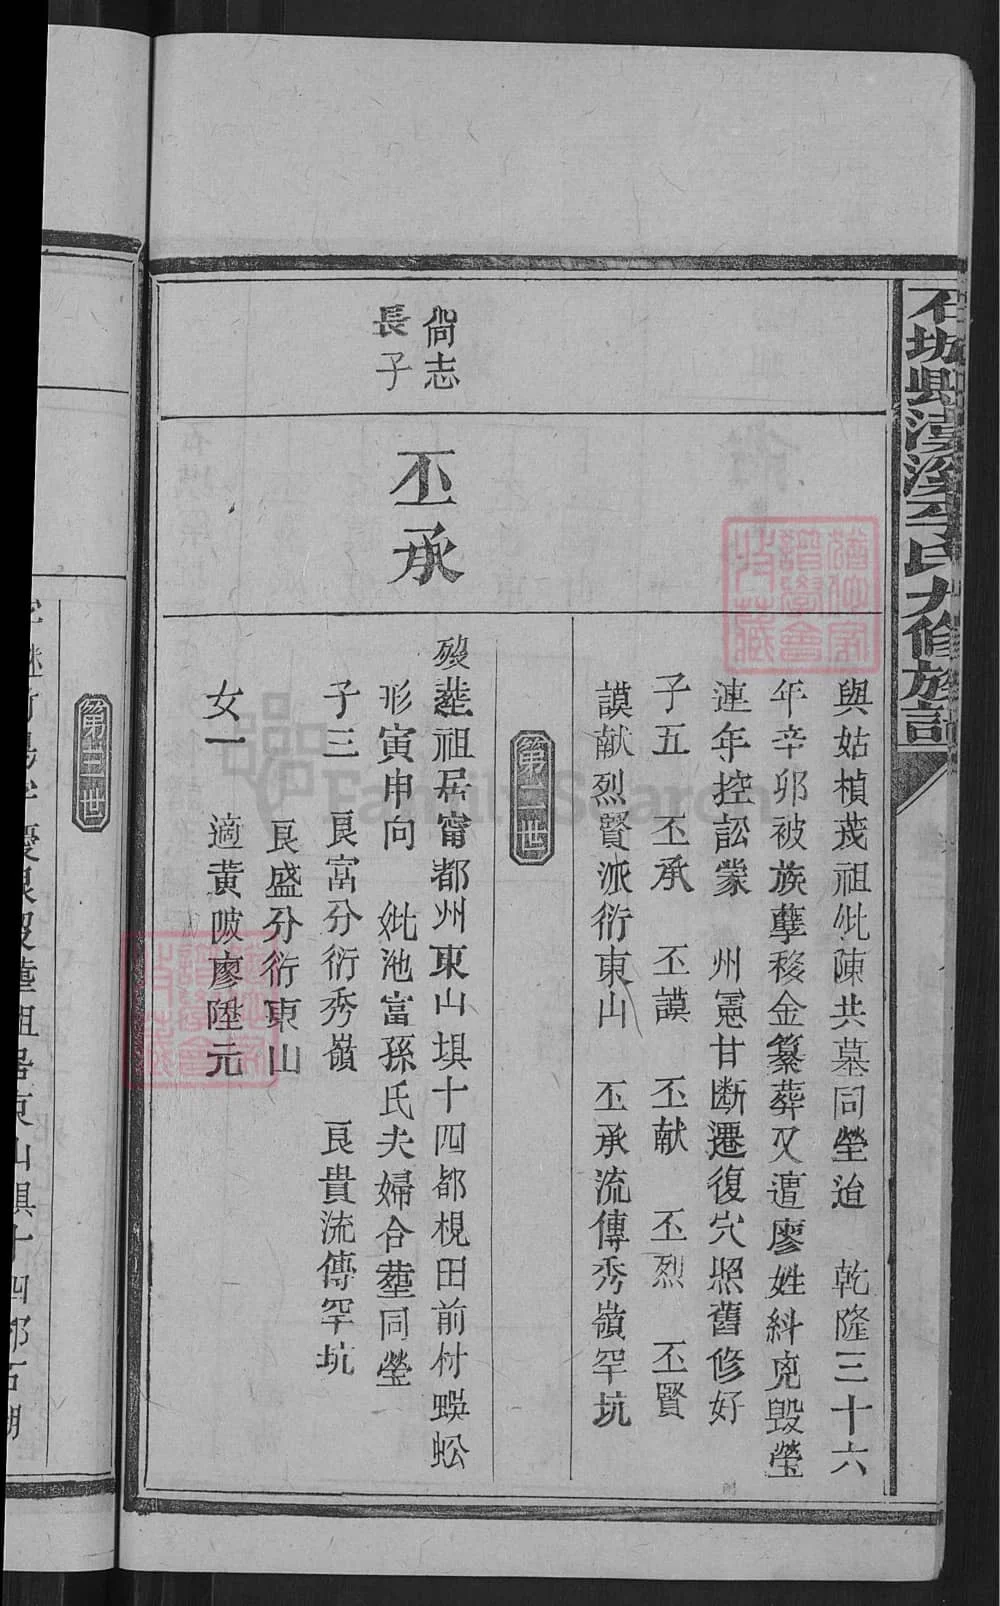 石城縣漢溪李氏九修族譜
與姑楨茂祖妣陳共墓同塋迨　乾隆三十六
年辛卯被族孽移金纂葬又遭廖姓糾兇毀塋
連年控訟蒙　州憲甘斷遷復穴照舊修好
子五　丕承　丕謨　丕献　丕烈　丕賢
謨献烈賢派衍東山　丕承流傳秀嶺罕坑
第二世
尙志
長子
丕承
歿葬祖居甯都州東山壩十四都梘田前村蜈蚣
形寅申向　妣池富孫氏夫婦合葬同塋
子三　良富分衍秀嶺　良貴流傳罕坑
良盛分衍東山
女一　適黃陂廖陞元
第三世
FamilySearch